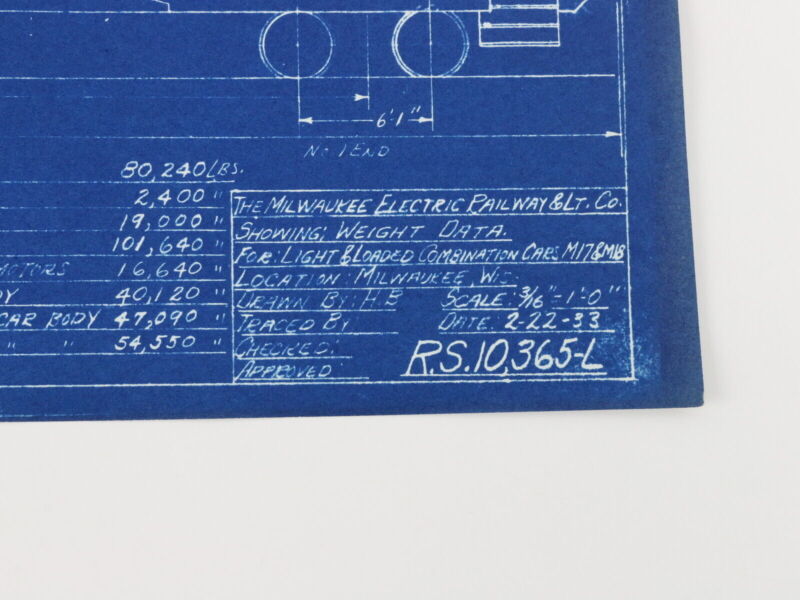 6'-1"
No 1 END
80,240 LBS.
2,400 "
19,000 "
101,640 "
MOTORS 16,640 "
40,120 "
CAR BODY 47,090 "
" " 54,550 "
THE MILWAUKEE ELECTRIC RAILWAY & LT. CO.
SHOWING; WEIGHT DATA.
FOR: LIGHT & LOADED COMBINATION CARS M17&M18
LOCATION: MILWAUKEE, WIS.
DRAWN BY: H.B SCALE: 3/16"-1'-0"
TRACED BY DATE: 2-22-33
CHECKED:
APPROVED: R.S.10,365-L